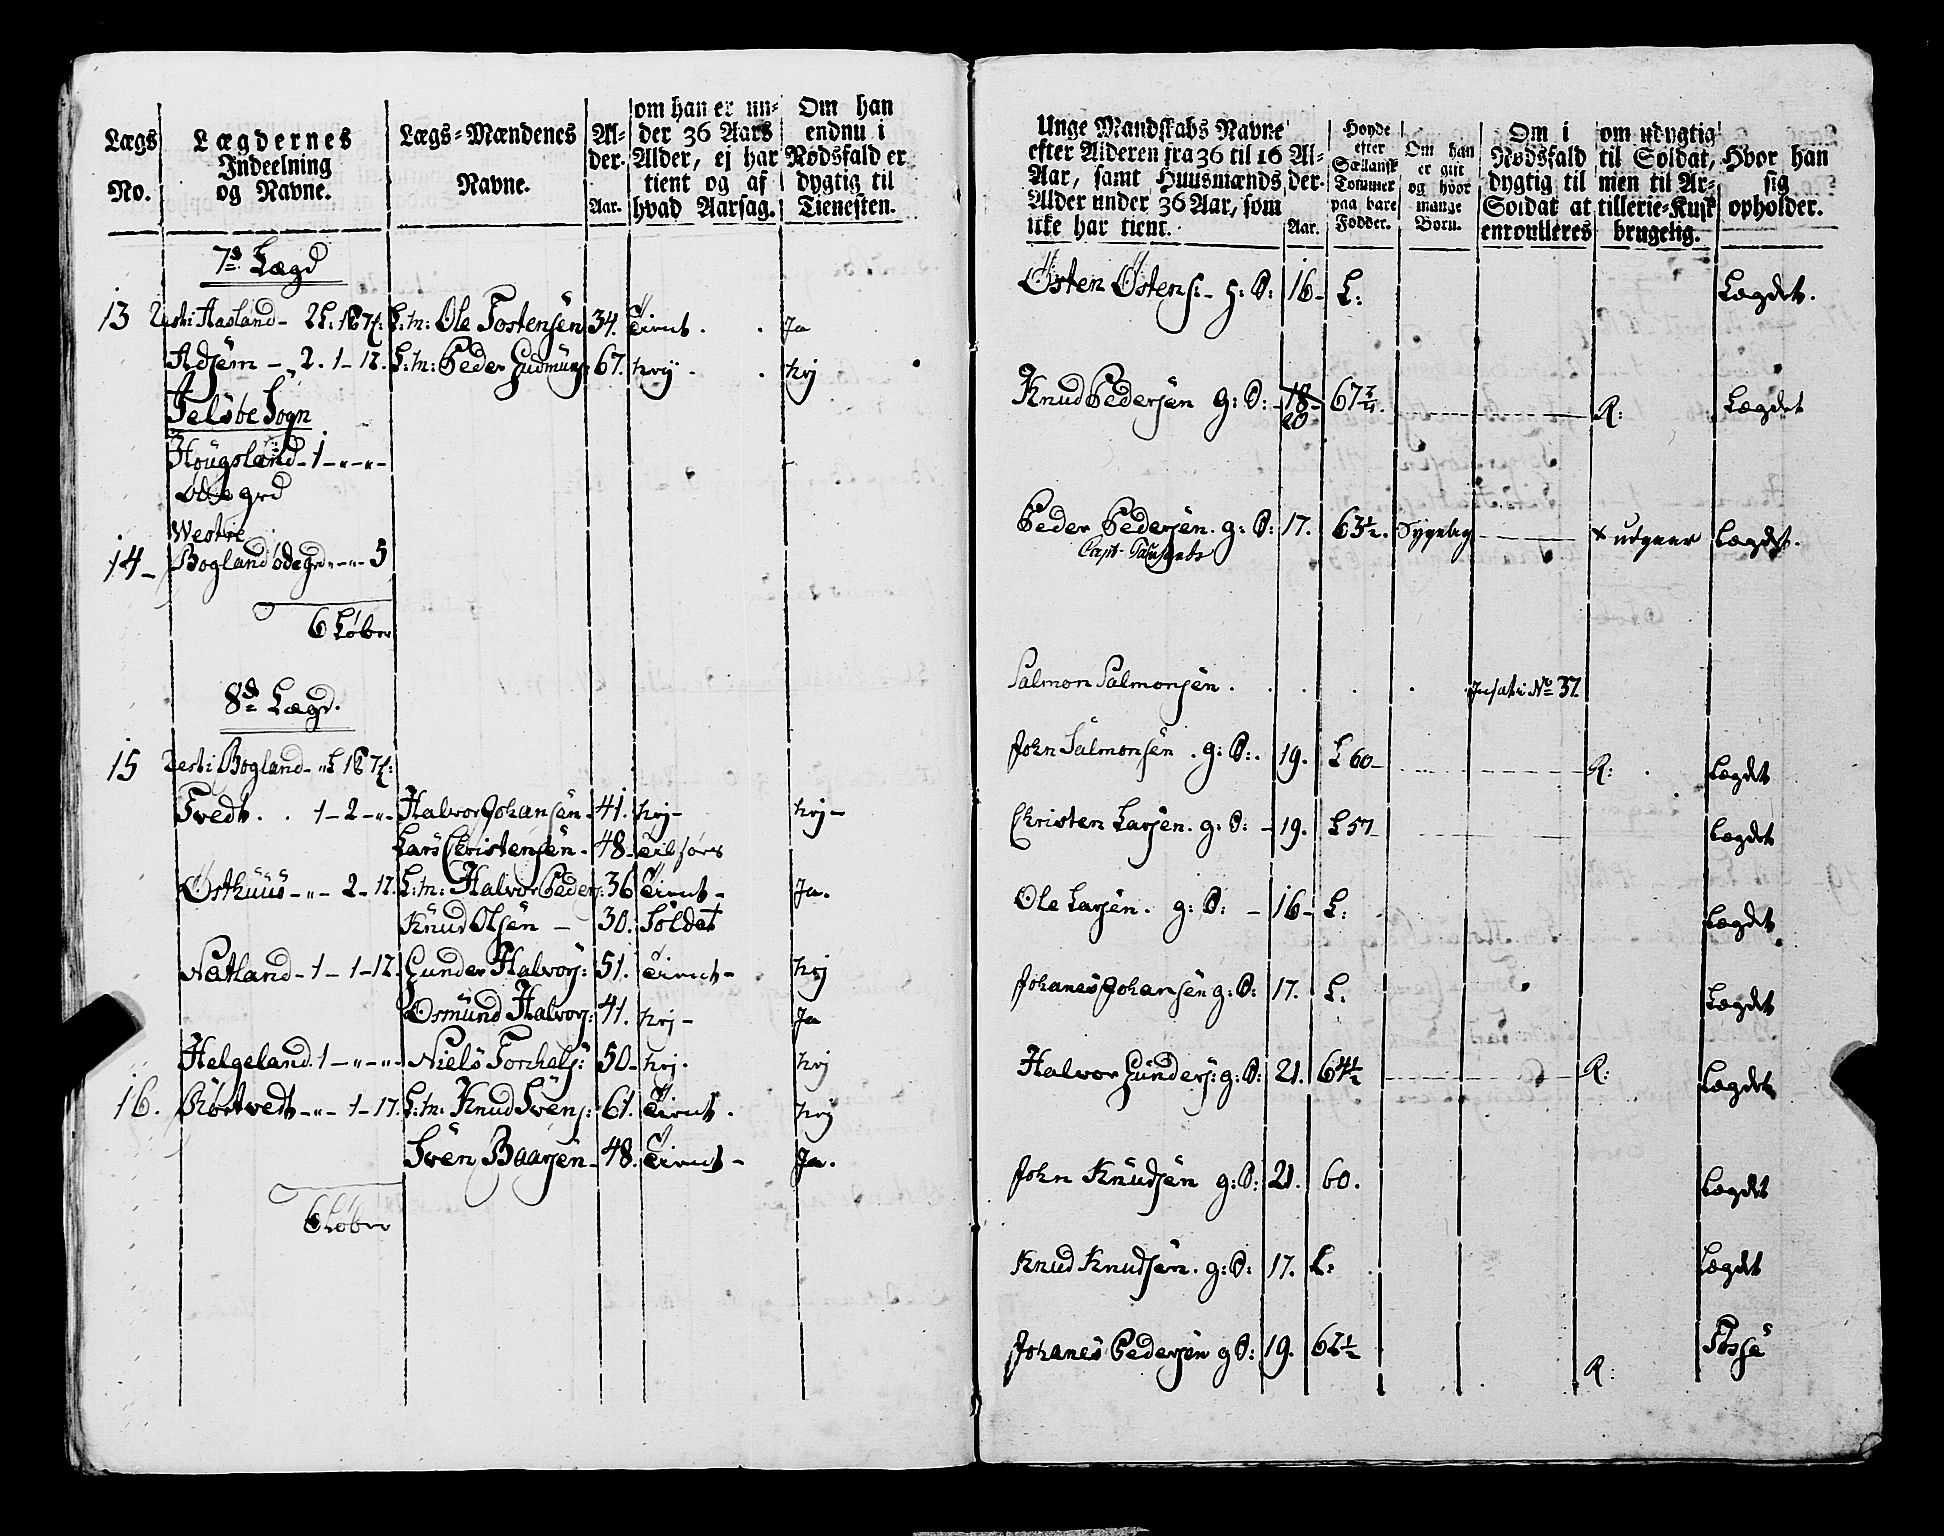 Lægs No.
Lægdernes Indeelning og Navne.
Lægs-Mændenes Navne.
Alder. Aar.
om han er under 36 Aars Alder, ej har tient og af hvad Aarsag.
Om han endnu i Nødsfald er dygtig til Tienesten.
7de Lægd
13 Rest: i Hasland - 2 L: 16 7/: L:m: Ole Tostensen 34. Tient . . Ja
Adsem - 2. 1 - 12. L:m: Peder Gudmuns 67. Nej . . Nej
Felsbe Sogn
Høugsland - 1 - " - " -
øde grd
Westre
14 - Bogland øde grd " - " 5
6 Løber
8de Lægd.
15 Rest: i Bogland - " L 16 7/:
Tvedt . . 1 - 2 - " - Halvor Johansen - 41. Nej - Nej -
Lars Christensen - 48 -
Østhuus - " - 2 - 12. L:m: Halvor Peders: 36 Tient - Ja.
Knud Olsen - 30. Soldat
Natland - 1 - 1 - 12. Gunder Halvors: 51. Tient - Nej
Osmund Halvors: 41. Nej - Ja
Helgeland. 1 - " - " - Niels Torchels: 50 - Nej. Nej
16. Rørtvedt - " - 1 - 17. L:m: Knud Svens: 61. Tient . Nej
Sven Baarsen - 48. Tient - Ja.
6 Løber
Unge Mandskabs Navne efter Alderen fra 36 til 16 Aar, samt Huusmænds Alder under 36 Aar, som icke har tient.
Alder. Aar.
Høyde efter Sællansk Tommer paa bare Fødder.
Om han er gift og hvor mange Børn.
Om i Nødsfald dygtig til Soldat at enroulleres
om udygtig til Soldat, men til Artillerie-Kusk brugelig.
Hvor han sig opholder.
Østen Østens: - H: S: 16 - L: Lægdet.
Knud Pedersen g: S: - 18 - 20 67 3/4. R: Lægdet
Peder Pedersen. g: S: 17. 63 1/2. Sygelig + udgaar Lægdet.
Salmon Salmonsen . . . . . Insat i No 37.
John Salmonsen . g: S: . 19. L 60 - R: . Lægdet
Christen Larsen. g: S: - 19. L 57 - Lægdet
Ole Larsen. g: S: - 16 - L: Lægdet
Johanes Johansen g: S: 17. L: Lægdet
Halvor Gunders: g: S: 21. 64 1/2 R: Lægdet
John Knudsen g: S: 21. 60. Lægdet
Knud Knudsen. g: S: 17. L: Lægdet
Johanes Pedersen g S: 19. 62 1/2 R: Fosse